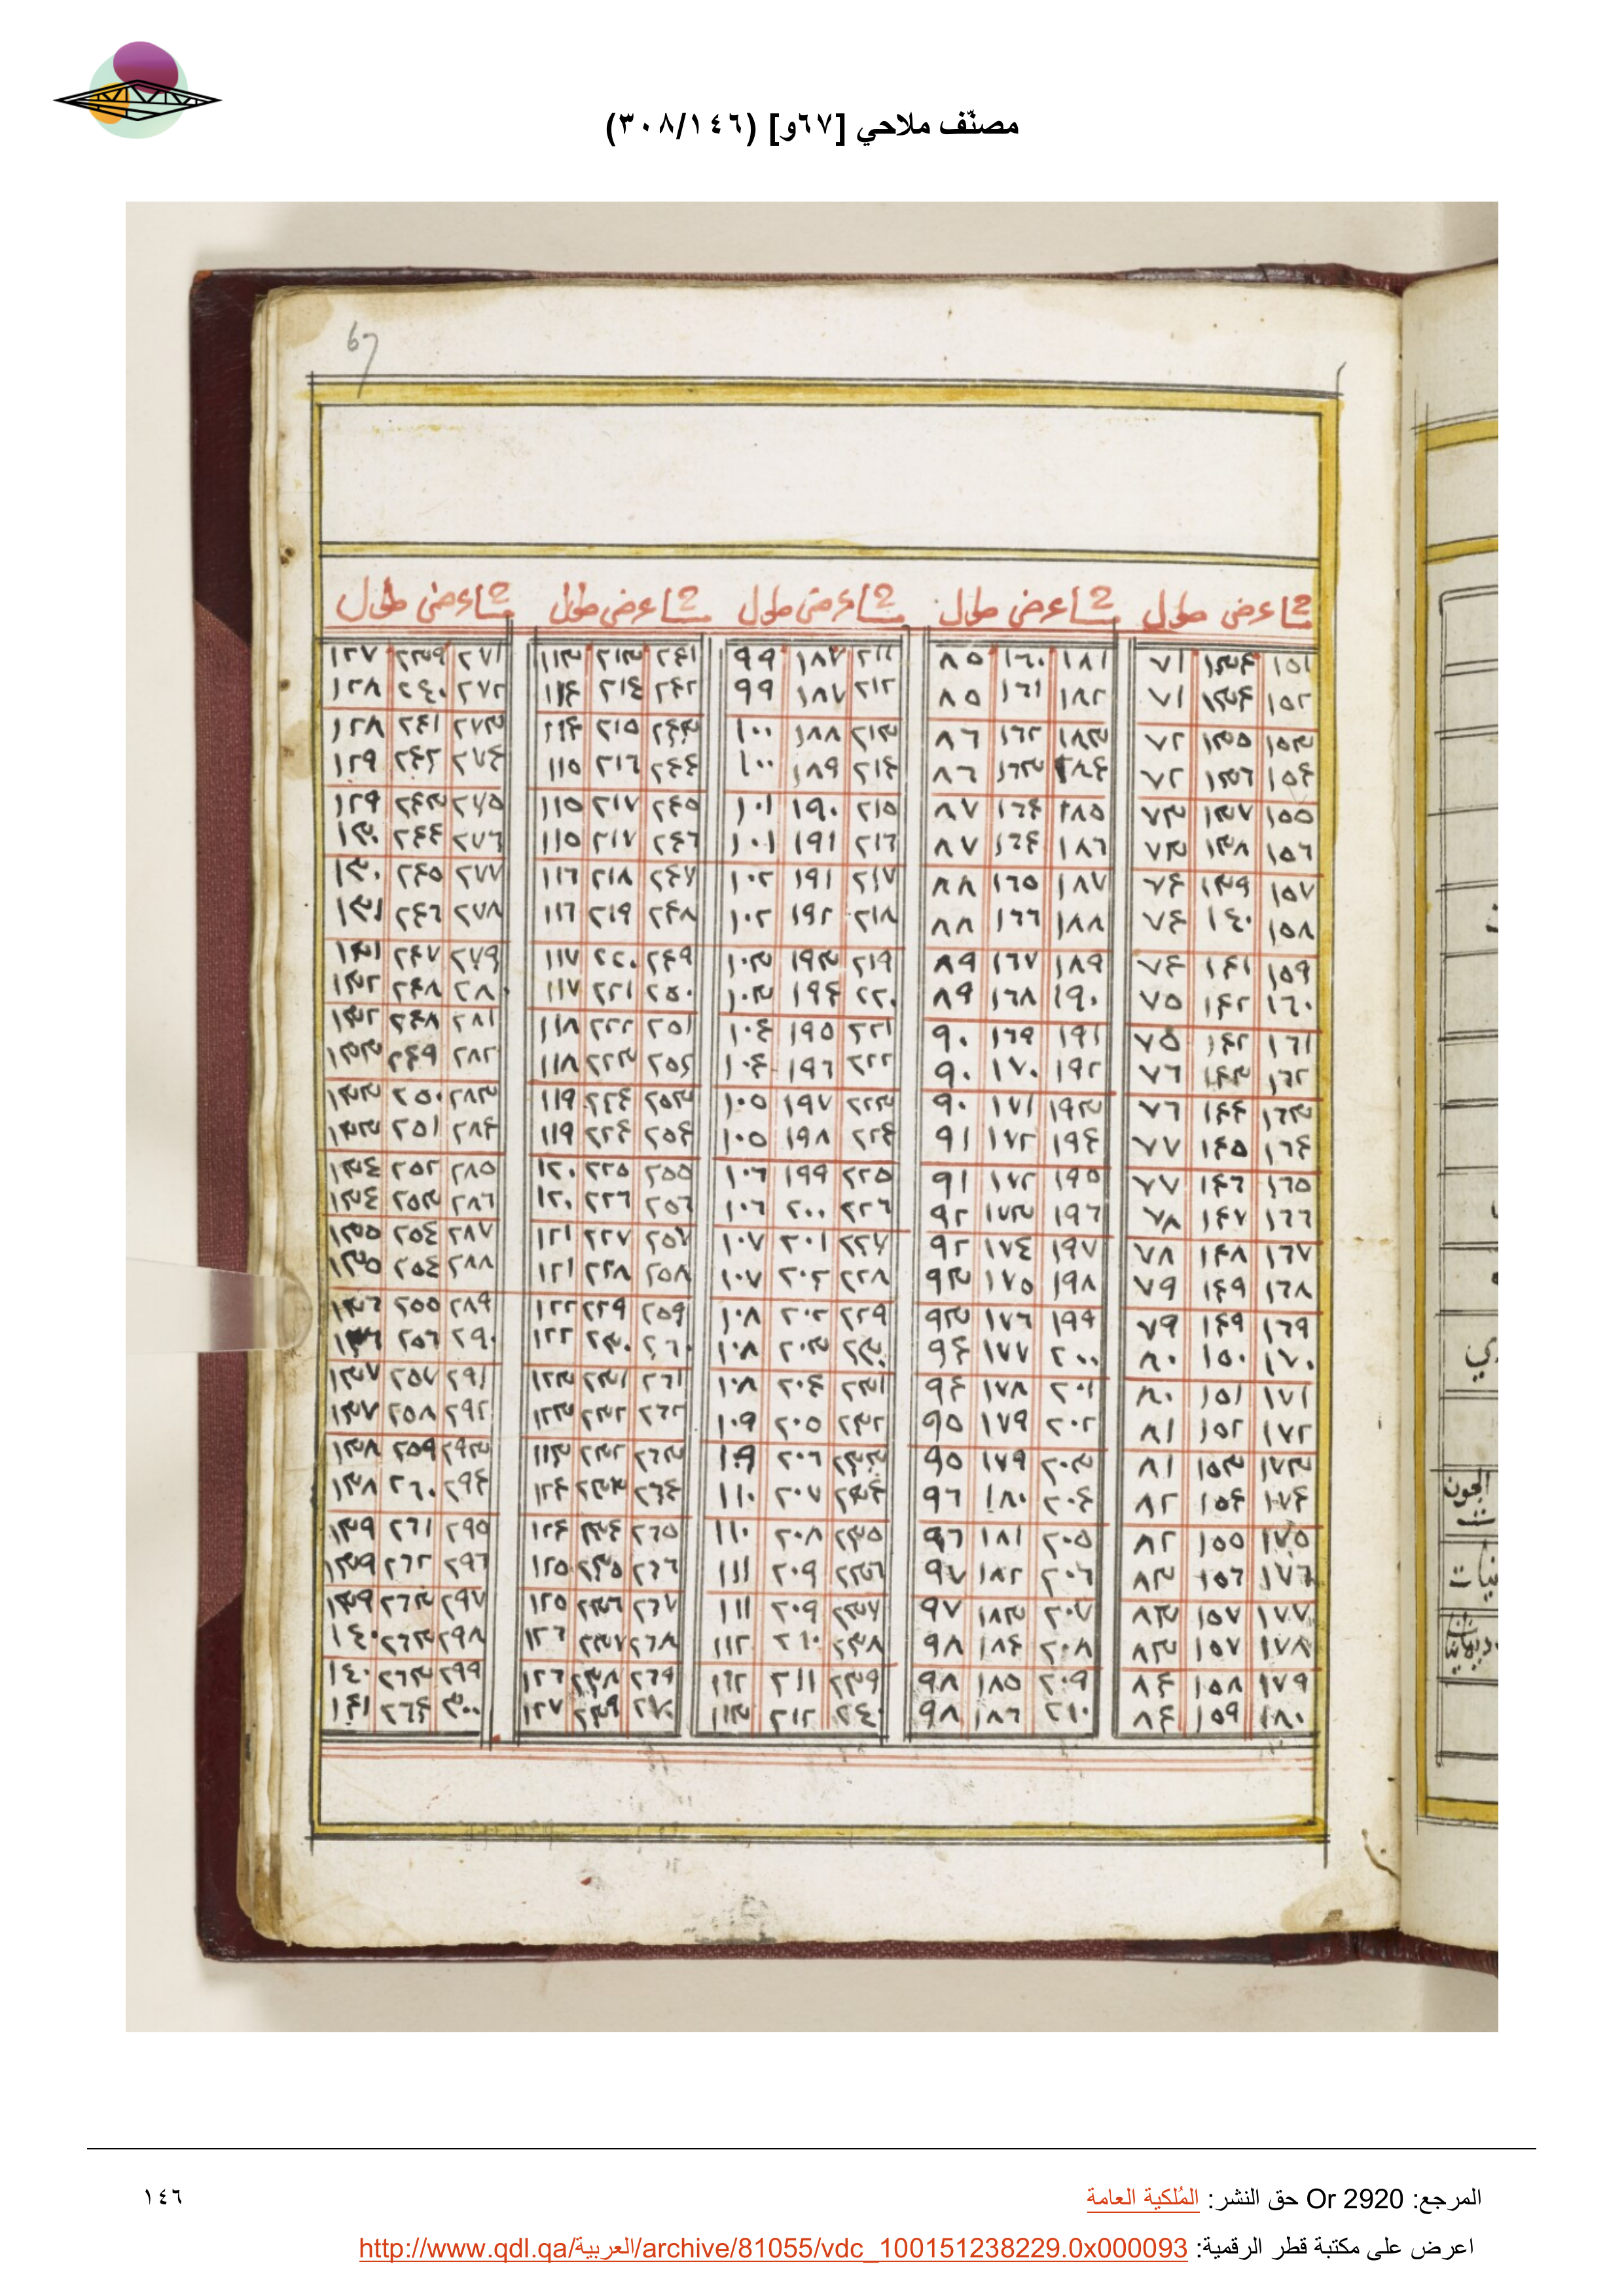 مصنّف ملاحي [٦٧و] (٣٠٨/١٤٦)
67
عرض طول عرض طول عرض طول عرض طول عرض طول
١٥١ ١٣٤ ٧١ ١٨١ ١٦٠ ٨٥ ٢١١ ١٨٧ ٩٩ ٢٤١ ٢١٣ ١١٣ ٢٧١ ٢٣٩ ١٢٧
١٥٢ ١٣٤ ٧١ ١٨٢ ١٦١ ٨٥ ٢١٢ ١٨٧ ٩٩ ٢٤٢ ٢١٤ ١١٤ ٢٧٢ ٢٤٠ ١٢٨
١٥٣ ١٣٥ ٧٢ ١٨٣ ١٦٢ ٨٦ ٢١٣ ١٨٨ ١٠٠ ٢٤٣ ٢١٥ ١١٤ ٢٧٣ ٢٤١ ١٢٨
١٥٤ ١٣٦ ٧٢ ١٨٤ ١٦٣ ٨٦ ٢١٤ ١٨٩ ١٠٠ ٢٤٤ ٢١٦ ١١٥ ٢٧٤ ٢٤٢ ١٢٩
١٥٥ ١٣٧ ٧٣ ١٨٥ ١٦٤ ٨٧ ٢١٥ ١٩٠ ١٠١ ٢٤٥ ٢١٧ ١١٥ ٢٧٥ ٢٤٣ ١٢٩
١٥٦ ١٣٨ ٧٣ ١٨٦ ١٦٤ ٨٧ ٢١٦ ١٩١ ١٠١ ٢٤٦ ٢١٧ ١١٥ ٢٧٦ ٢٤٤ ١٣٠
١٥٧ ١٣٩ ٧٤ ١٨٧ ١٦٥ ٨٨ ٢١٧ ١٩١ ١٠٢ ٢٤٧ ٢١٨ ١١٦ ٢٧٧ ٢٤٥ ١٣٠
١٥٨ ١٤٠ ٧٤ ١٨٨ ١٦٦ ٨٨ ٢١٨ ١٩٢ ١٠٢ ٢٤٨ ٢١٩ ١١٦ ٢٧٨ ٢٤٦ ١٣١
١٥٩ ١٤١ ٧٤ ١٨٩ ١٦٧ ٨٩ ٢١٩ ١٩٣ ١٠٣ ٢٤٩ ٢٢٠ ١١٧ ٢٧٩ ٢٤٧ ١٣١
١٦٠ ١٤٢ ٧٥ ١٩٠ ١٦٨ ٨٩ ٢٢٠ ١٩٤ ١٠٣ ٢٥٠ ٢٢١ ١١٧ ٢٨٠ ٢٤٨ ١٣٢
١٦١ ١٤٢ ٧٥ ١٩١ ١٦٩ ٩٠ ٢٢١ ١٩٥ ١٠٤ ٢٥١ ٢٢٢ ١١٨ ٢٨١ ٢٤٨ ١٣٢
١٦٢ ١٤٣ ٧٦ ١٩٢ ١٧٠ ٩٠ ٢٢٢ ١٩٦ ١٠٤ ٢٥٢ ٢٢٣ ١١٨ ٢٨٢ ٢٤٩ ١٣٣
١٦٣ ١٤٤ ٧٦ ١٩٣ ١٧١ ٩٠ ٢٢٣ ١٩٧ ١٠٥ ٢٥٣ ٢٢٤ ١١٩ ٢٨٣ ٢٥٠ ١٣٣
١٦٤ ١٤٥ ٧٧ ١٩٤ ١٧٢ ٩١ ٢٢٤ ١٩٨ ١٠٥ ٢٥٤ ٢٢٤ ١١٩ ٢٨٤ ٢٥١ ١٣٣
١٦٥ ١٤٦ ٧٧ ١٩٥ ١٧٢ ٩١ ٢٢٥ ١٩٩ ١٠٦ ٢٥٥ ٢٢٥ ١٢٠ ٢٨٥ ٢٥٢ ١٣٤
١٦٦ ١٤٧ ٧٨ ١٩٦ ١٧٣ ٩٢ ٢٢٦ ٢٠٠ ١٠٦ ٢٥٦ ٢٢٦ ١٢٠ ٢٨٦ ٢٥٣ ١٣٤
١٦٧ ١٤٨ ٧٨ ١٩٧ ١٧٤ ٩٢ ٢٢٧ ٢٠١ ١٠٧ ٢٥٧ ٢٢٧ ١٢١ ٢٨٧ ٢٥٤ ١٣٥
١٦٨ ١٤٩ ٧٩ ١٩٨ ١٧٥ ٩٣ ٢٢٨ ٢٠٢ ١٠٧ ٢٥٨ ٢٢٨ ١٢١ ٢٨٨ ٢٥٤ ١٣٥
١٦٩ ١٤٩ ٧٩ ١٩٩ ١٧٦ ٩٣ ٢٢٩ ٢٠٢ ١٠٨ ٢٥٩ ٢٢٩ ١٢٢ ٢٨٩ ٢٥٥ ١٣٦
١٧٠ ١٥٠ ٨٠ ٢٠٠ ١٧٧ ٩٤ ٢٣٠ ٢٠٣ ١٠٨ ٢٦٠ ٢٣٠ ١٢٢ ٢٩٠ ٢٥٦ ١٣٦
١٧١ ١٥١ ٨٠ ٢٠١ ١٧٨ ٩٤ ٢٣١ ٢٠٤ ١٠٨ ٢٦١ ٢٣١ ١٢٣ ٢٩١ ٢٥٧ ١٣٧
١٧٢ ١٥٢ ٨١ ٢٠٢ ١٧٩ ٩٥ ٢٣٢ ٢٠٥ ١٠٩ ٢٦٢ ٢٣٢ ١٢٣ ٢٩٢ ٢٥٨ ١٣٧
١٧٣ ١٥٣ ٨١ ٢٠٣ ١٧٩ ٩٥ ٢٣٣ ٢٠٦ ١٠٩ ٢٦٣ ٢٣٢ ١١٣ ٢٩٣ ٢٥٩ ١٣٨
١٧٤ ١٥٤ ٨٢ ٢٠٤ ١٨٠ ٩٦ ٢٣٤ ٢٠٧ ١١٠ ٢٦٤ ٢٣٣ ١٢٤ ٢٩٤ ٢٦٠ ١٣٨
١٧٥ ١٥٥ ٨٢ ٢٠٥ ١٨١ ٩٦ ٢٣٥ ٢٠٨ ١١٠ ٢٦٥ ٢٣٤ ١٢٤ ٢٩٥ ٢٦١ ١٣٩
١٧٦ ١٥٦ ٨٣ ٢٠٦ ١٨٢ ٩٧ ٢٣٦ ٢٠٩ ١١١ ٢٦٦ ٢٣٥ ١٢٥ ٢٩٦ ٢٦٢ ١٣٩
١٧٧ ١٥٧ ٨٣ ٢٠٧ ١٨٣ ٩٧ ٢٣٧ ٢٠٩ ١١١ ٢٦٧ ٢٣٦ ١٢٥ ٢٩٧ ٢٦٣ ١٣٩
١٧٨ ١٥٧ ٨٣ ٢٠٨ ١٨٤ ٩٨ ٢٣٨ ٢١٠ ١١٢ ٢٦٨ ٢٣٧ ١٢٦ ٢٩٨ ٢٦٣ ١٤٠
١٧٩ ١٥٨ ٨٤ ٢٠٩ ١٨٥ ٩٨ ٢٣٩ ٢١١ ١٦٢ ٢٦٩ ٢٣٨ ١٢٦ ٢٩٩ ٢٦٣ ١٤٠
١٨٠ ١٥٩ ٨٤ ٢١٠ ١٨٦ ٩٨ ٢٤٠ ٢١٢ ١١٣ ٢٧٠ ٢٣٩ ١٢٧ ٣٠٠ ٢٦٤ ١٤١
المرجع: Or 2920 حق النشر: المُلكية العامة
١٤٦
اعرض على مكتبة قطر الرقمية: http://www.qdl.qa/العربية/archive/81055/vdc_100151238229.0x000093